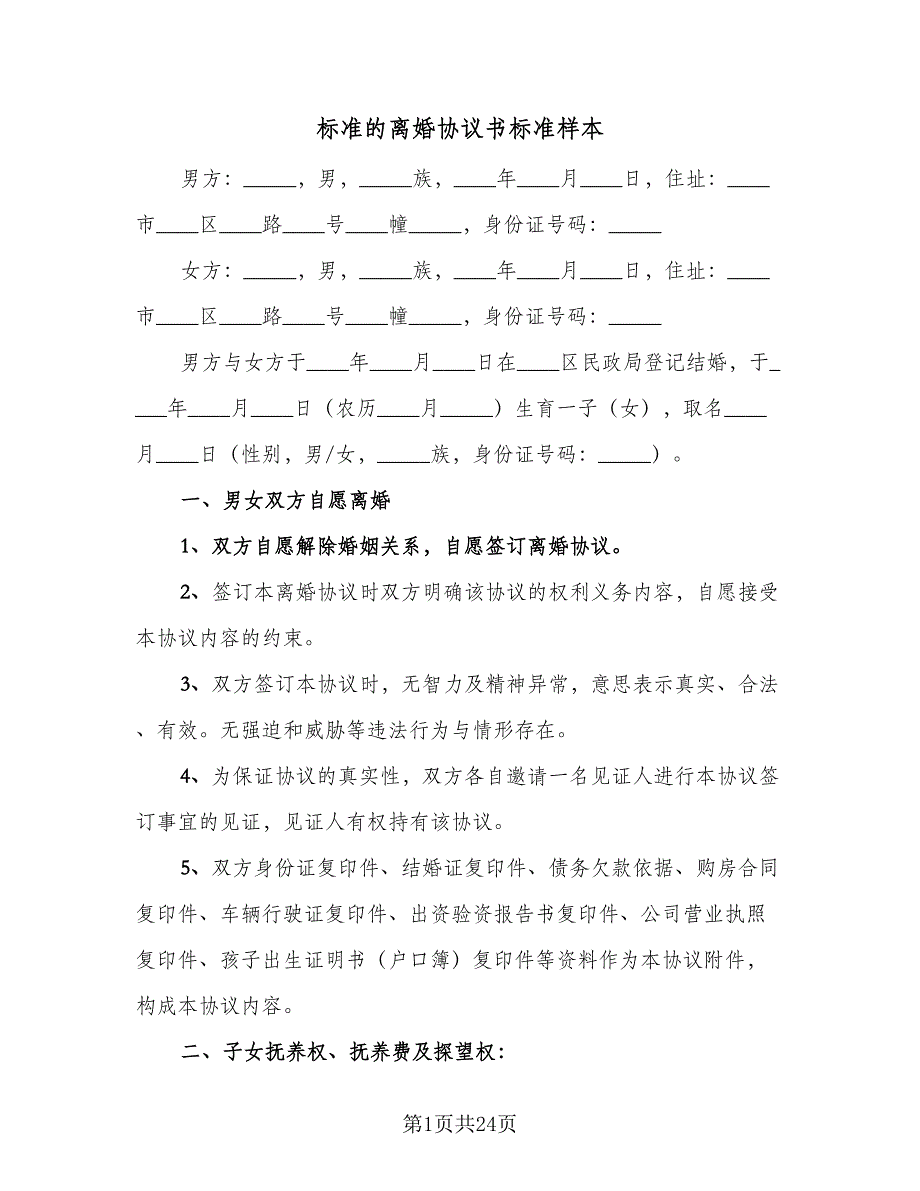 标准的离婚协议书标准样本
男方：_____，男，_____族，____年____月____日，住址：____
市____区____路____号____幢_____，身份证号码：_____
女方：_____，男，_____族，____年____月____日，住址：____
市____区____路____号____幢_____，身份证号码：_____
男方与女方于____年____月____日在____区民政局登记结婚，于_
___年____月____日（农历____月_____）生育一子（女），取名____
月____日（性别，男/女，_____族，身份证号码：_____）。
一、男女双方自愿离婚
1、双方自愿解除婚姻关系，自愿签订离婚协议。
2、签订本离婚协议时双方明确该协议的权利义务内容，自愿接受
本协议内容的约束。
3、双方签订本协议时，无智力及精神异常，意思表示真实、合法
、有效。无强迫和威胁等违法行为与情形存在。
4、为保证协议的真实性，双方各自邀请一名见证人进行本协议签
订事宜的见证，见证人有权持有该协议。
5、双方身份证复印件、结婚证复印件、债务欠款依据、购房合同
复印件、车辆行驶证复印件、出资验资报告书复印件、公司营业执照
复印件、孩子出生证明书（户口簿）复印件等资料作为本协议附件，
构成本协议内容。
二、子女抚养权、抚养费及探望权：
第1页共24页